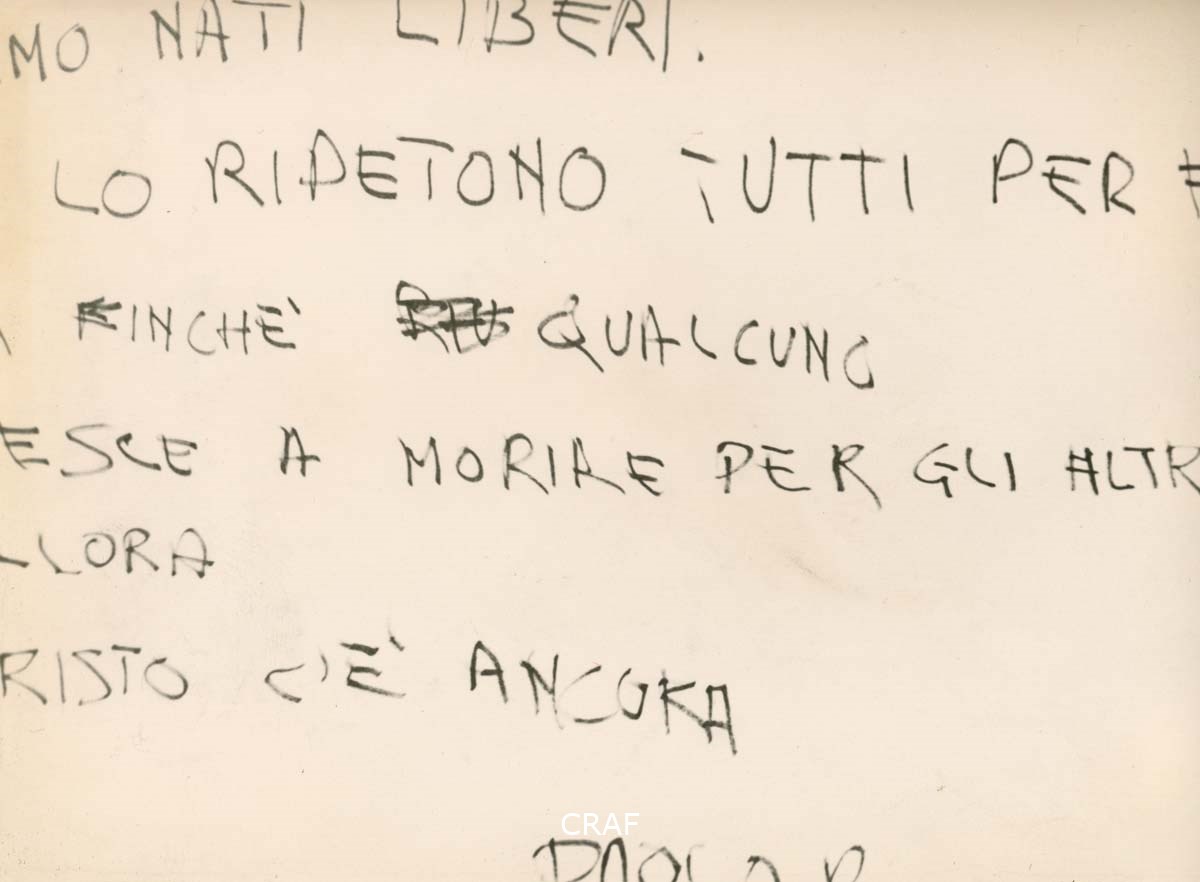 MO NATI LIBERI.
LO RIPETONO TUTTI PER
FINCHÈ QUALCUNO
ESCE A MORIRE PER GLI ALTR
LLORA
RISTO C'È ANCORA
CRAF